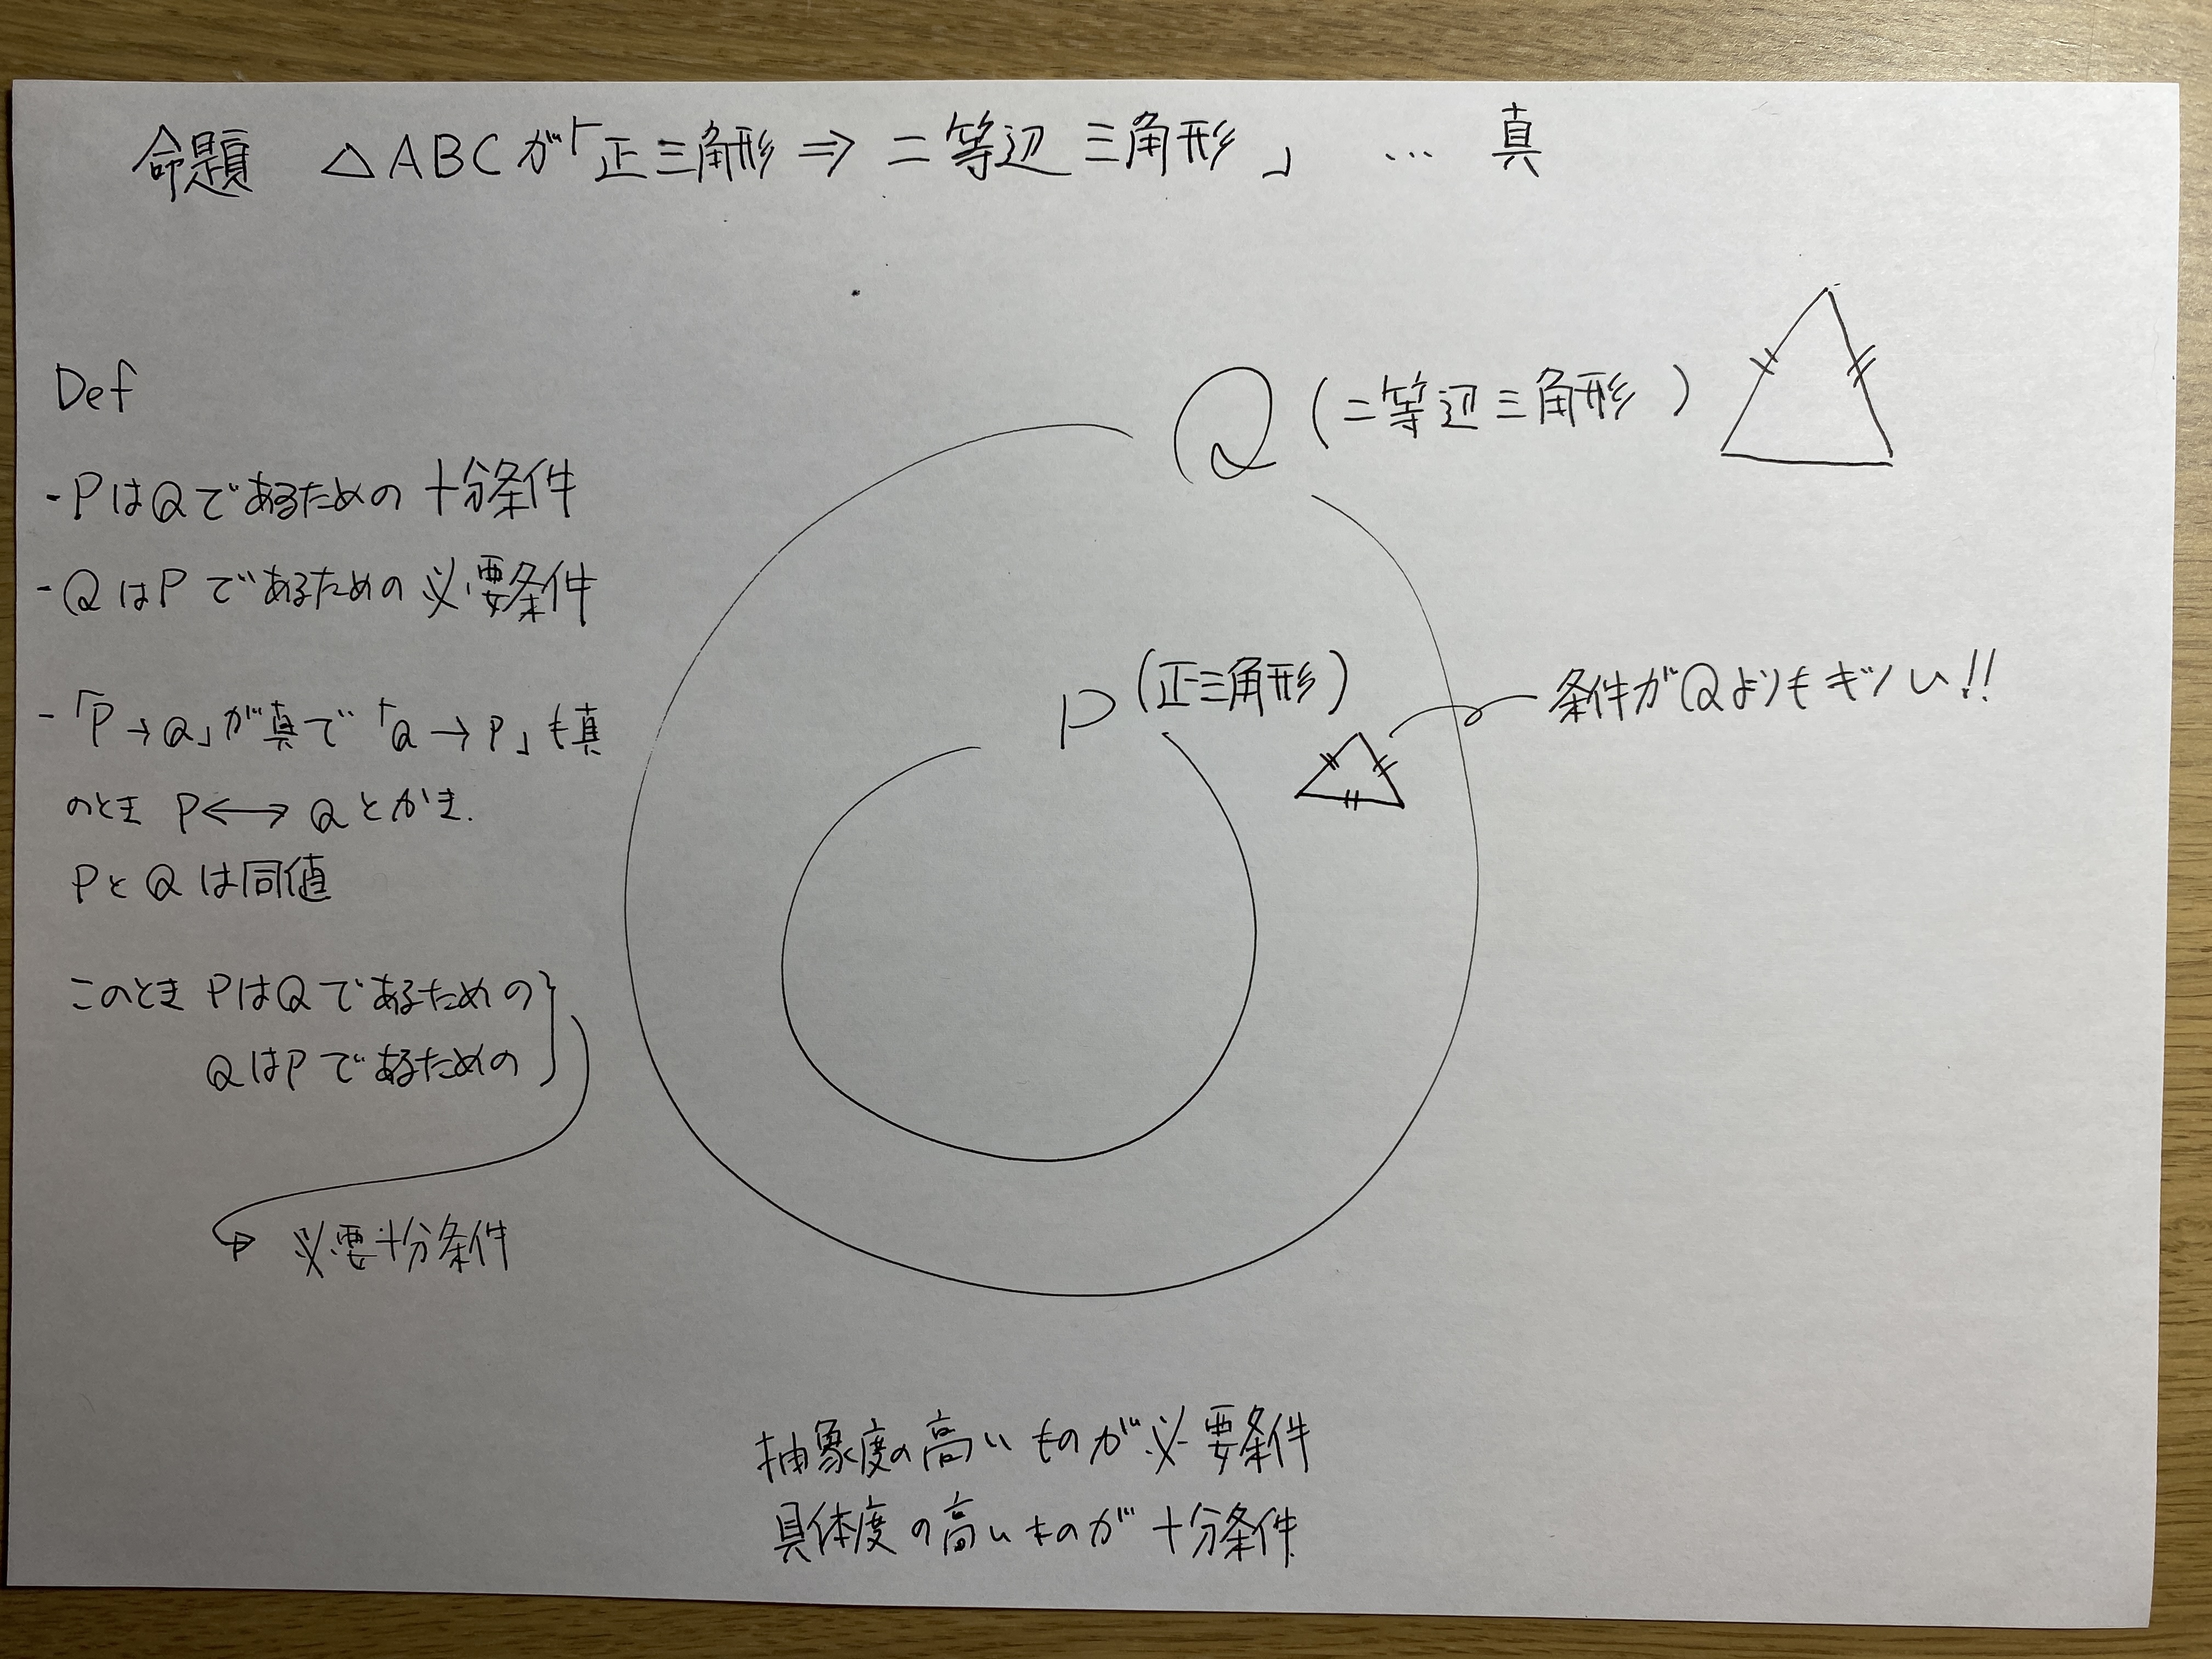 命題 △ABCが「正三角形⇒二等辺三角形」 … 真
Def
-PはQであるための十分条件
-QはPであるための必要条件
-「P→Q」が真で「Q→P」も真
のとき P⟷Qとかき.
PとQは同値
このとき PはQであるための
QはPであるための
必要十分条件
Q(二等辺三角形)
P(正三角形)
条件がQよりもキツい!!
抽象度の高いものが必要条件
具体度の高いものが十分条件